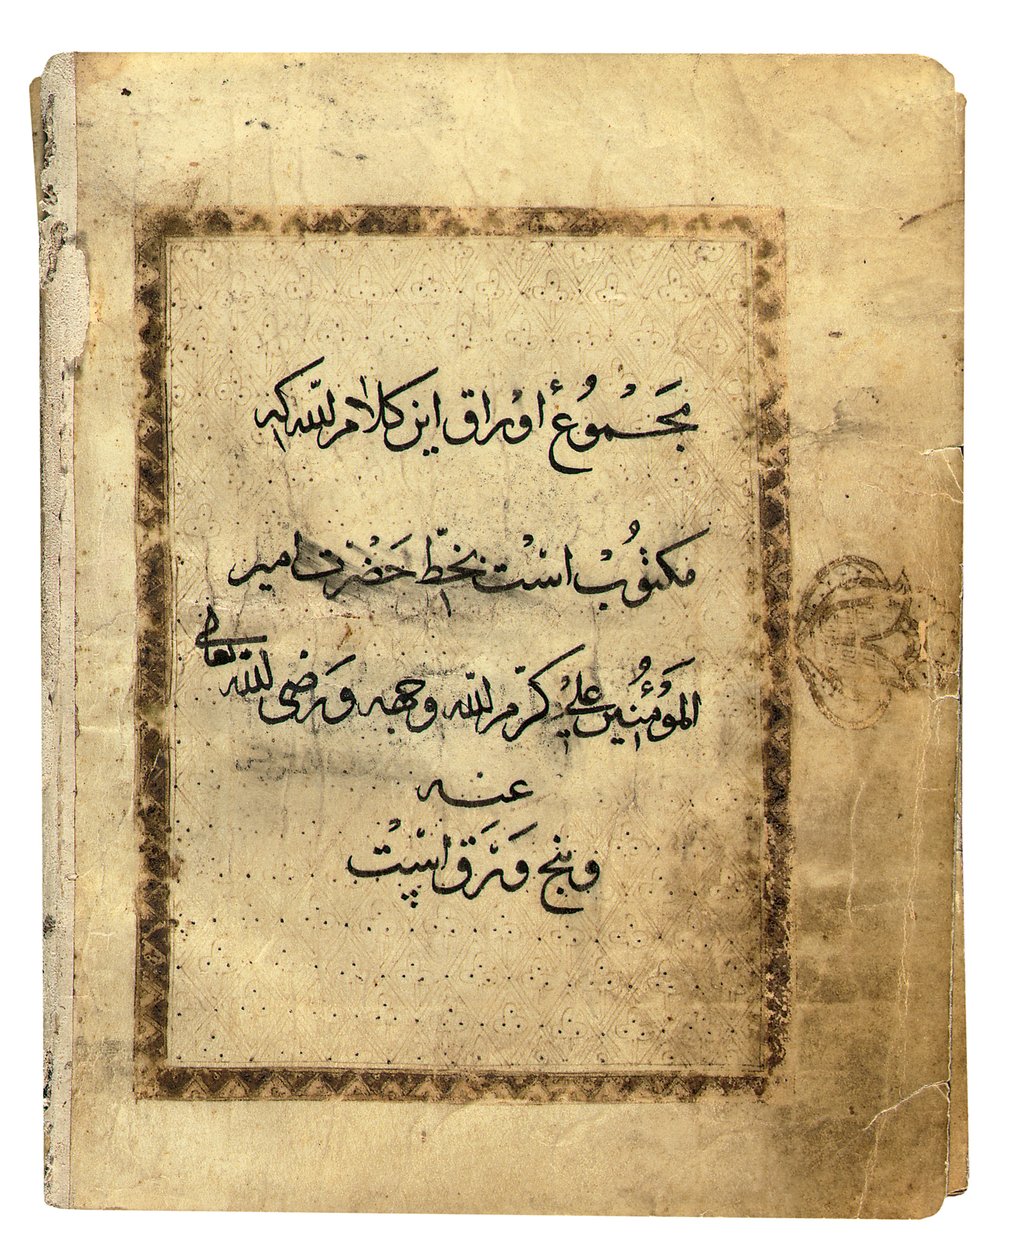 مَجْمُوُعْ أوْراق اين كلام اللّه كه
مكتوُبْ اسّْت بخطّ حَضْرت امير
المَؤُْمنُينْ عليّْ كرّم اللّه وجهه ورَضى اللّه تعالى
عنه
وپنج وَرَق اسّْت